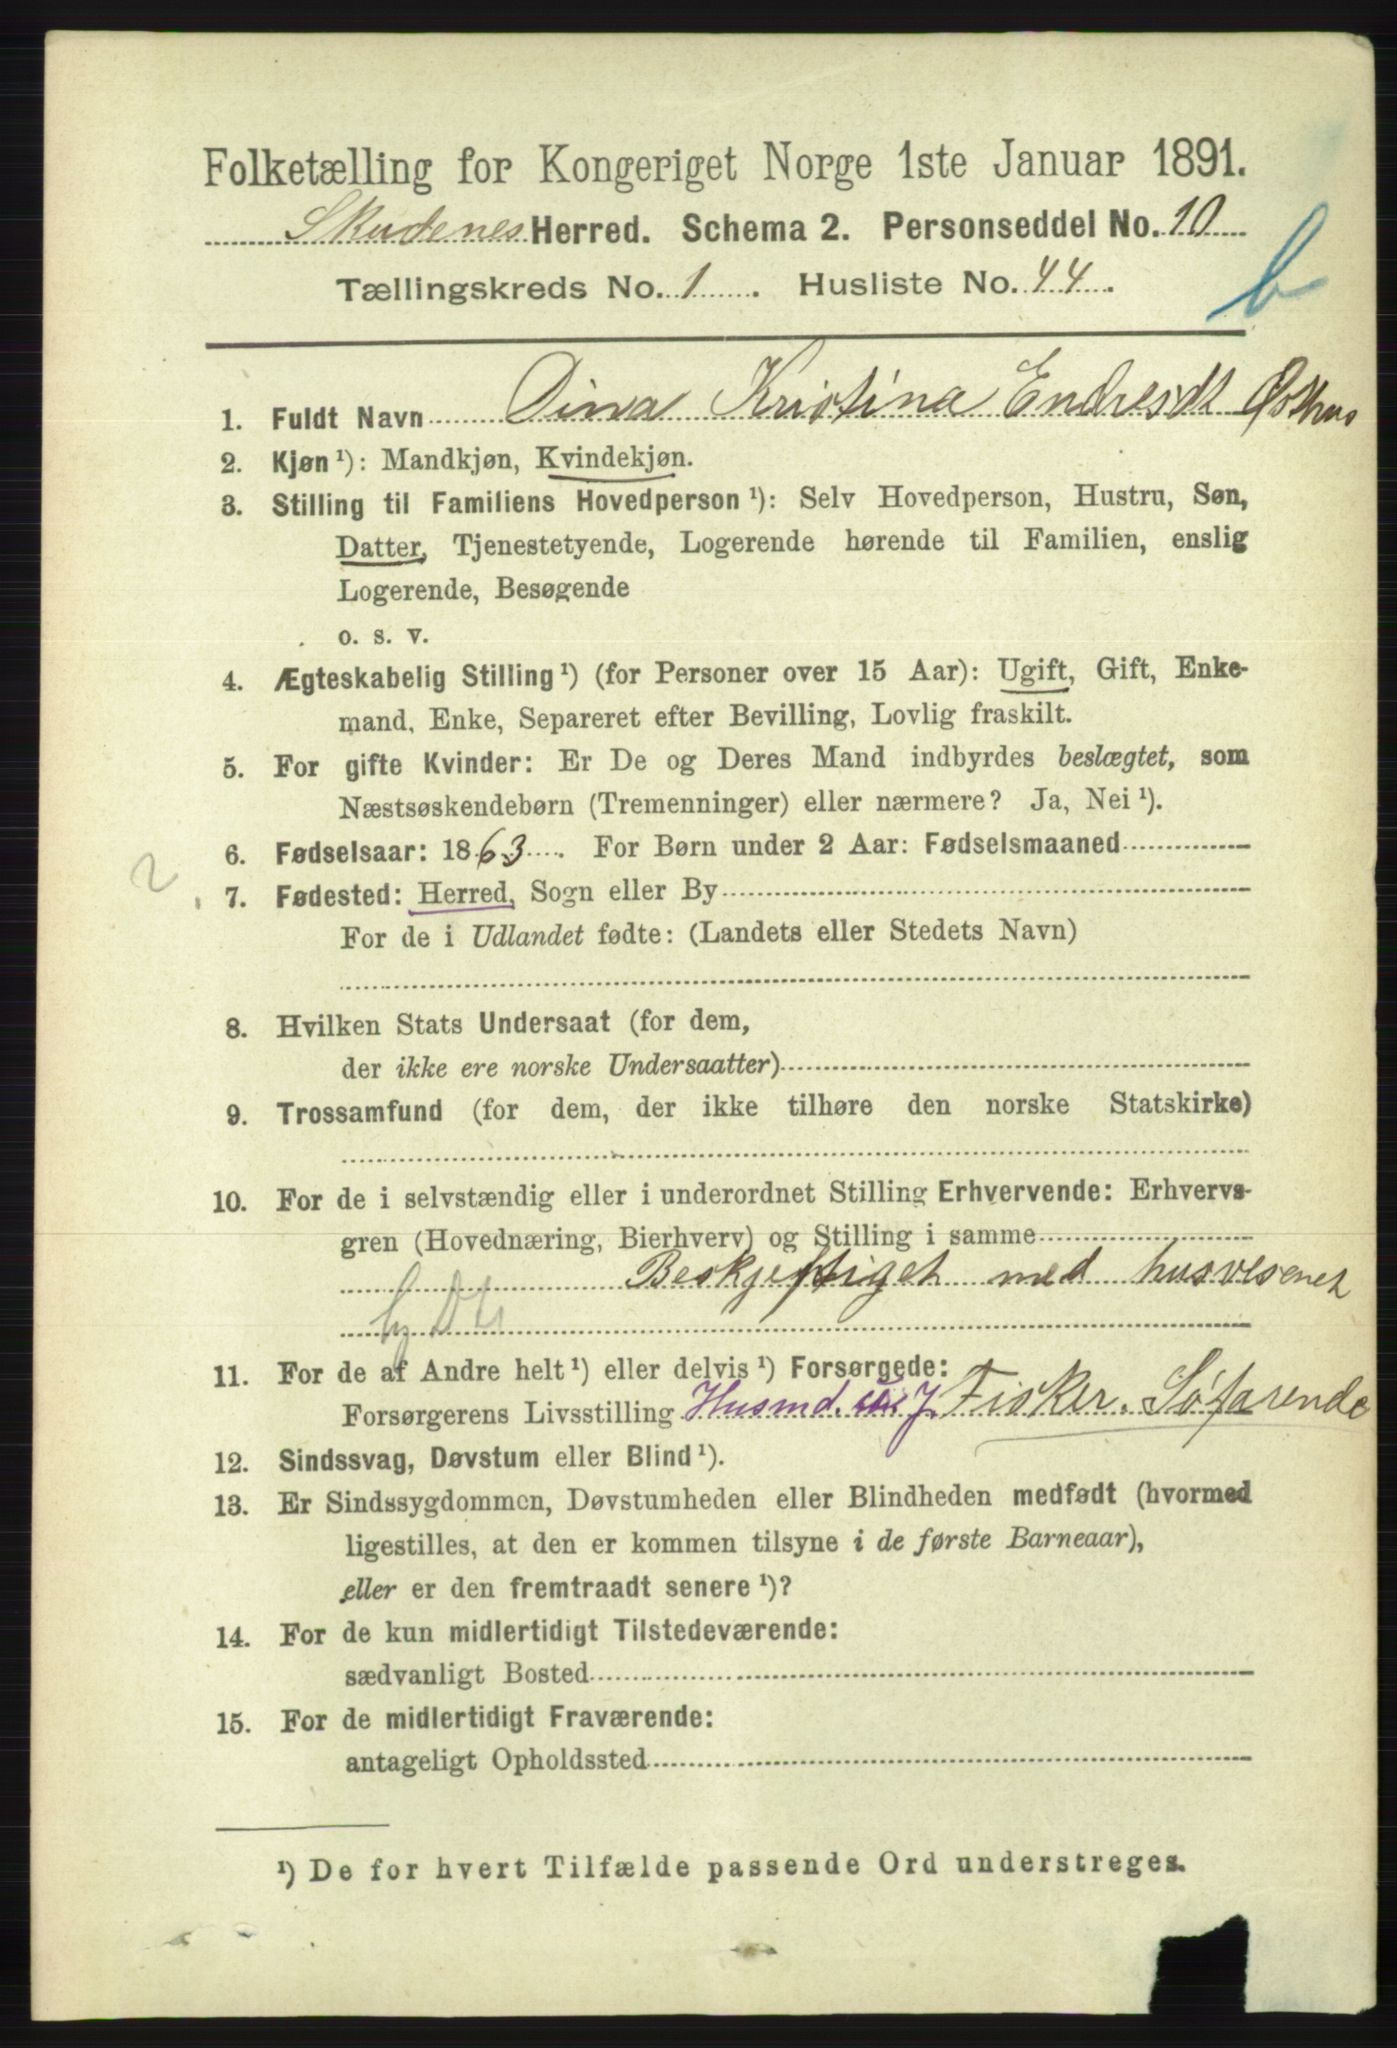 Folketælling for Kongeriget Norge 1ste Januar 1891.
Skudenes Herred. Schema 2. Personseddel No. 10
Tællingskreds No. 1. Husliste No. 44.
b
1. Fuldt Navn Dina Kristina Endresdt Østhus
2. Kjøn¹): Mandkjøn, Kvindekjøn.
3. Stilling til Familiens Hovedperson¹): Selv Hovedperson, Hustru, Søn,
Datter, Tjenestetyende, Logerende hørende til Familien, enslig
Logerende, Besøgende
o. s. v.
4. Ægteskabelig Stilling¹) (for Personer over 15 Aar): Ugift, Gift, Enke-
mand, Enke, Separeret efter Bevilling, Lovlig fraskilt.
5. For gifte Kvinder: Er De og Deres Mand indbyrdes beslægtet, som
Næstsøskendebørn (Tremenninger) eller nærmere? Ja, Nei¹).
6. Fødselsaar: 1863. For Børn under 2 Aar: Fødselsmaaned
2
7. Fødested: Herred, Sogn eller By
For de i Udlandet fødte: (Landets eller Stedets Navn)
8. Hvilken Stats Undersaat (for dem,
der ikke ere norske Undersaatter)
9. Trossamfund (for dem, der ikke tilhøre den norske Statskirke)
10. For de i selvstændig eller i underordnet Stilling Erhvervende: Erhvervs-
gren (Hovednæring, Bierhverv) og Stilling i samme
Beskjeftiget med husvesenet
11. For de af Andre helt¹) eller delvis¹) Forsørgede:
Forsørgerens Livsstilling Husmd. J. Fisker. Søfarende
12. Sindssvag, Døvstum eller Blind¹).
13. Er Sindssygdommen, Døvstumheden eller Blindheden medfødt (hvormed
ligestilles, at den er kommen tilsyne i de første Barneaar),
eller er den fremtraadt senere¹)?
14. For de kun midlertidigt Tilstedeværende:
sædvanligt Bosted
15. For de midlertidigt Fraværende:
antageligt Opholdssted
¹) De for hvert Tilfælde passende Ord understreges.